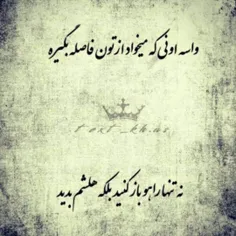 واسه اونی که میخواد ازتون فاصله بگیره
text_kh.as
نه تنها راهو باز کنید بلکه هلشم بدید